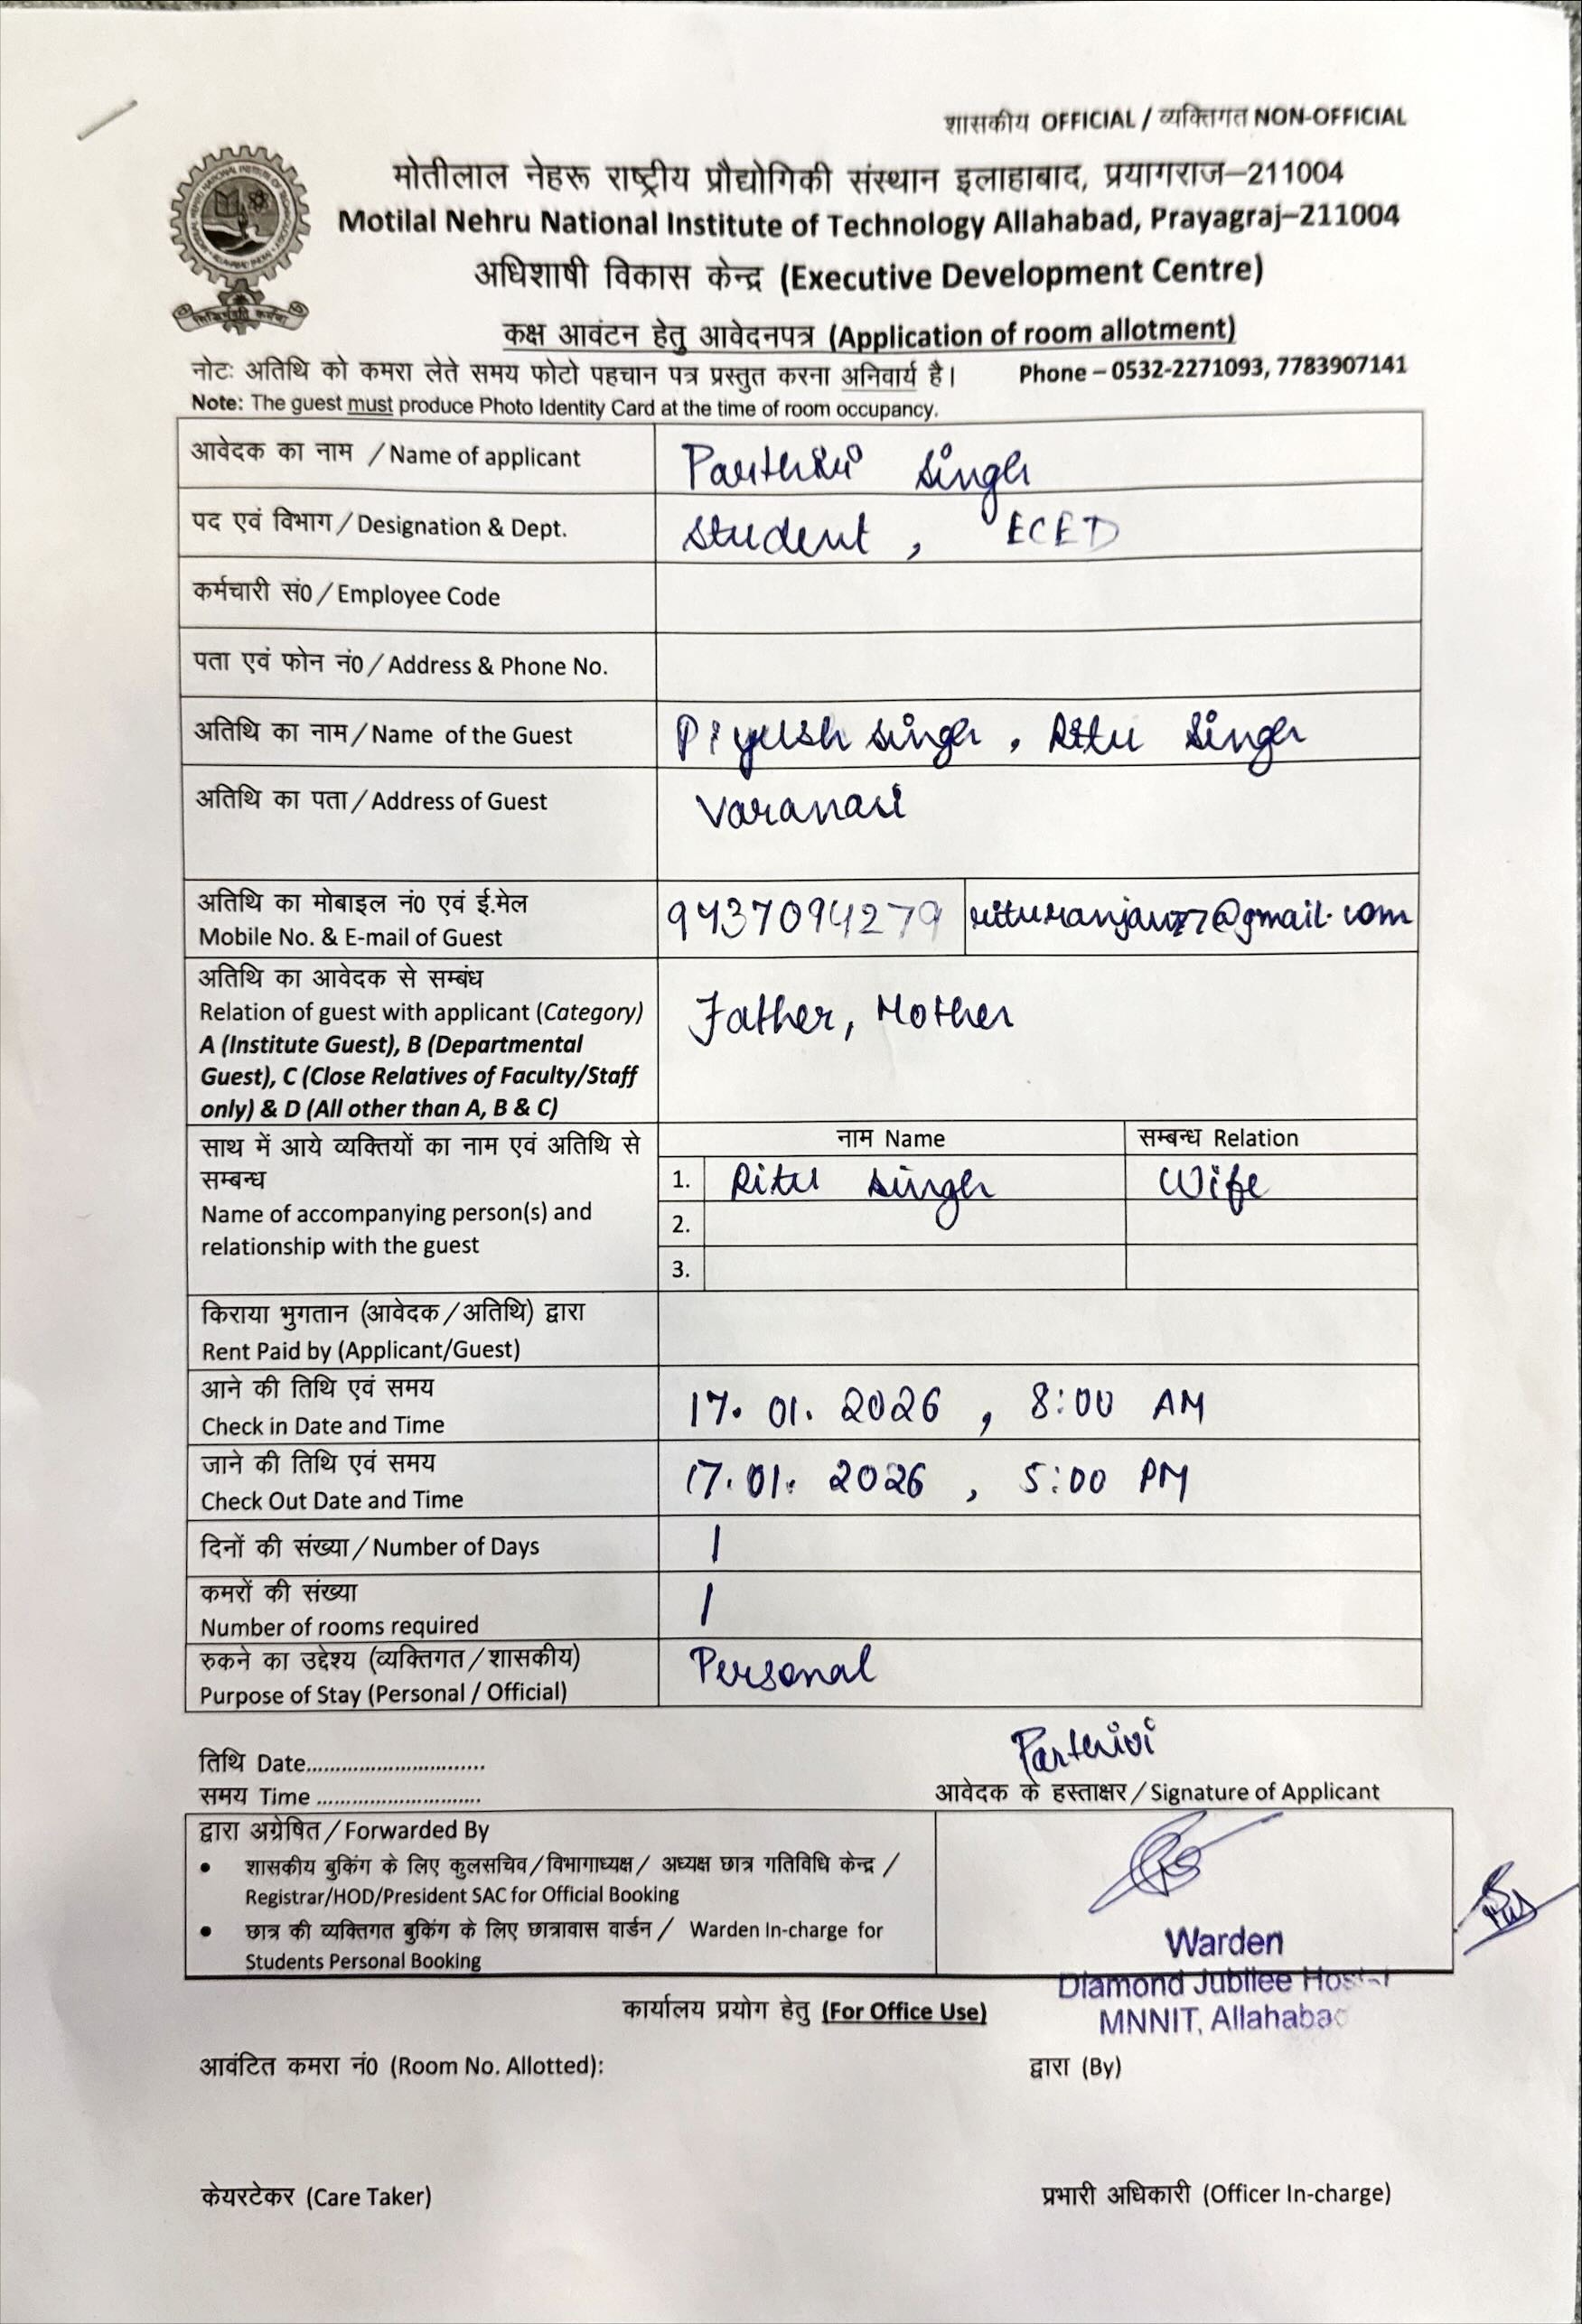 शासकीय OFFICIAL / व्यक्तिगत NON-OFFICIAL
मोतीलाल नेहरू राष्ट्रीय प्रौद्योगिकी संस्थान इलाहाबाद, प्रयागराज–211004
Motilal Nehru National Institute of Technology Allahabad, Prayagraj–211004
अधिशाषी विकास केन्द्र (Executive Development Centre)
कक्ष आवंटन हेतु आवेदनपत्र (Application of room allotment)
नोटः अतिथि को कमरा लेते समय फोटो पहचान पत्र प्रस्तुत करना अनिवार्य है। Phone – 0532-2271093, 7783907141
Note: The guest must produce Photo Identity Card at the time of room occupancy.
आवेदक का नाम / Name of applicant Parthivi Singh
पद एवं विभाग / Designation & Dept. Student, ECED
कर्मचारी सं0 / Employee Code
पता एवं फोन नं0 / Address & Phone No.
अतिथि का नाम / Name of the Guest Piyush Singh, Ritu Singh
अतिथि का पता / Address of Guest Varanasi
अतिथि का मोबाइल नं0 एवं ई.मेल
Mobile No. & E-mail of Guest 9437094279
अतिथि का आवेदक से सम्बंध
Relation of guest with applicant (Category) Father, Mother
A (Institute Guest), B (Departmental
Guest), C (Close Relatives of Faculty/Staff
only) & D (All other than A, B & C)
साथ में आये व्यक्तियों का नाम एवं अतिथि से
सम्बन्ध
Name of accompanying person(s) and
relationship with the guest
नाम Name सम्बन्ध Relation
1. Ritu Singh Wife
2.
3.
किराया भुगतान (आवेदक / अतिथि) द्वारा
Rent Paid by (Applicant/Guest)
आने की तिथि एवं समय
Check in Date and Time 17.01.2026, 8:00 AM
जाने की तिथि एवं समय
Check Out Date and Time 17.01.2026, 5:00 PM
दिनों की संख्या / Number of Days 1
कमरों की संख्या
Number of rooms required 1
रुकने का उद्देश्य (व्यक्तिगत / शासकीय)
Purpose of Stay (Personal / Official) Personal
Parthivi
तिथि Date..............................
समय Time ............................
आवेदक के हस्ताक्षर / Signature of Applicant
द्वारा अग्रेषित / Forwarded By
• शासकीय बुकिंग के लिए कुलसचिव / विभागाध्यक्ष / अध्यक्ष छात्र गतिविधि केन्द्र /
Registrar/HOD/President SAC for Official Booking
• छात्र की व्यक्तिगत बुकिंग के लिए छात्रावास वार्डन / Warden In-charge for
Students Personal Booking
Warden
Diamond Jubilee Hostel
MNNIT, Allahabad
कार्यालय प्रयोग हेतु (For Office Use)
आवंटित कमरा नं0 (Room No. Allotted): द्वारा (By)
केयरटेकर (Care Taker) प्रभारी अधिकारी (Officer In-charge)